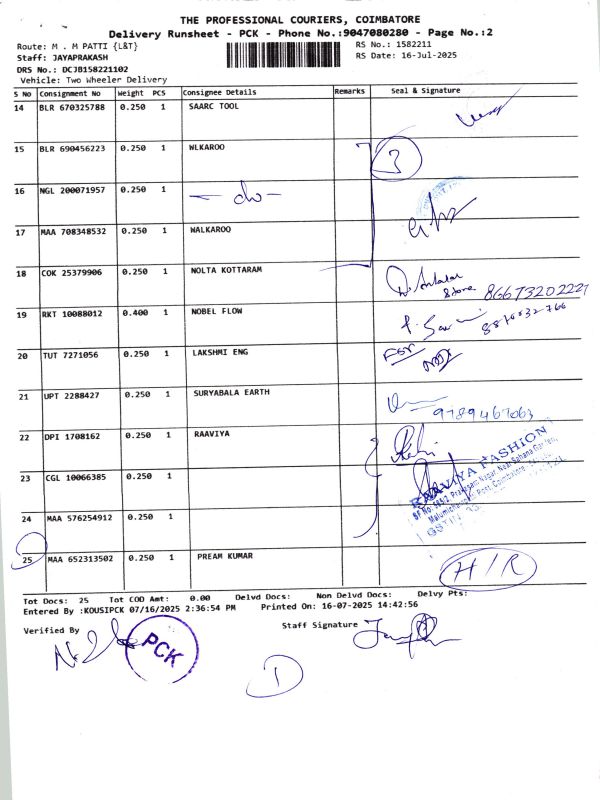 THE PROFESSIONAL COURIERS, COIMBATORE
Delivery Runsheet - PCK - Phone No.:9047080280 - Page No.:2
Route: M . M PATTI {L&T}
RS No.: 1582211
Staff: JAYAPRAKASH
RS Date: 16-Jul-2025
DRS No.: DCJB158221102
Vehicle: Two Wheeler Delivery
S No Consignment No Weight PCS Consignee Details Remarks Seal & Signature
14 BLR 670325788 0.250 1 SAARC TOOL
15 BLR 690456223 0.250 1 WLKAROO 3
16 NGL 200071957 0.250 1 - do -
17 MAA 708348532 0.250 1 WALKAROO
18 COK 25379906 0.250 1 NOLTA KOTTARAM
Store 8667320222
19 RKT 10088012 0.400 1 NOBEL FLOW
20 TUT 7271056 0.250 1 LAKSHMI ENG
For
21 UPT 2288427 0.250 1 SURYABALA EARTH
9789467063
22 DPI 1708162 0.250 1 RAAVIYA
23 CGL 10066385 0.250 1
RAAVIYA FASHION
24 MAA 576254912 0.250 1
25 MAA 652313502 0.250 1 PREAM KUMAR H/R
Tot Docs: 25 Tot COD Amt: 0.00 Delvd Docs: Non Delvd Docs: Delvy Pts:
Entered By :KOUSIPCK 07/16/2025 2:36:54 PM Printed On: 16-07-2025 14:42:56
Verified By
Staff Signature
PCK
1